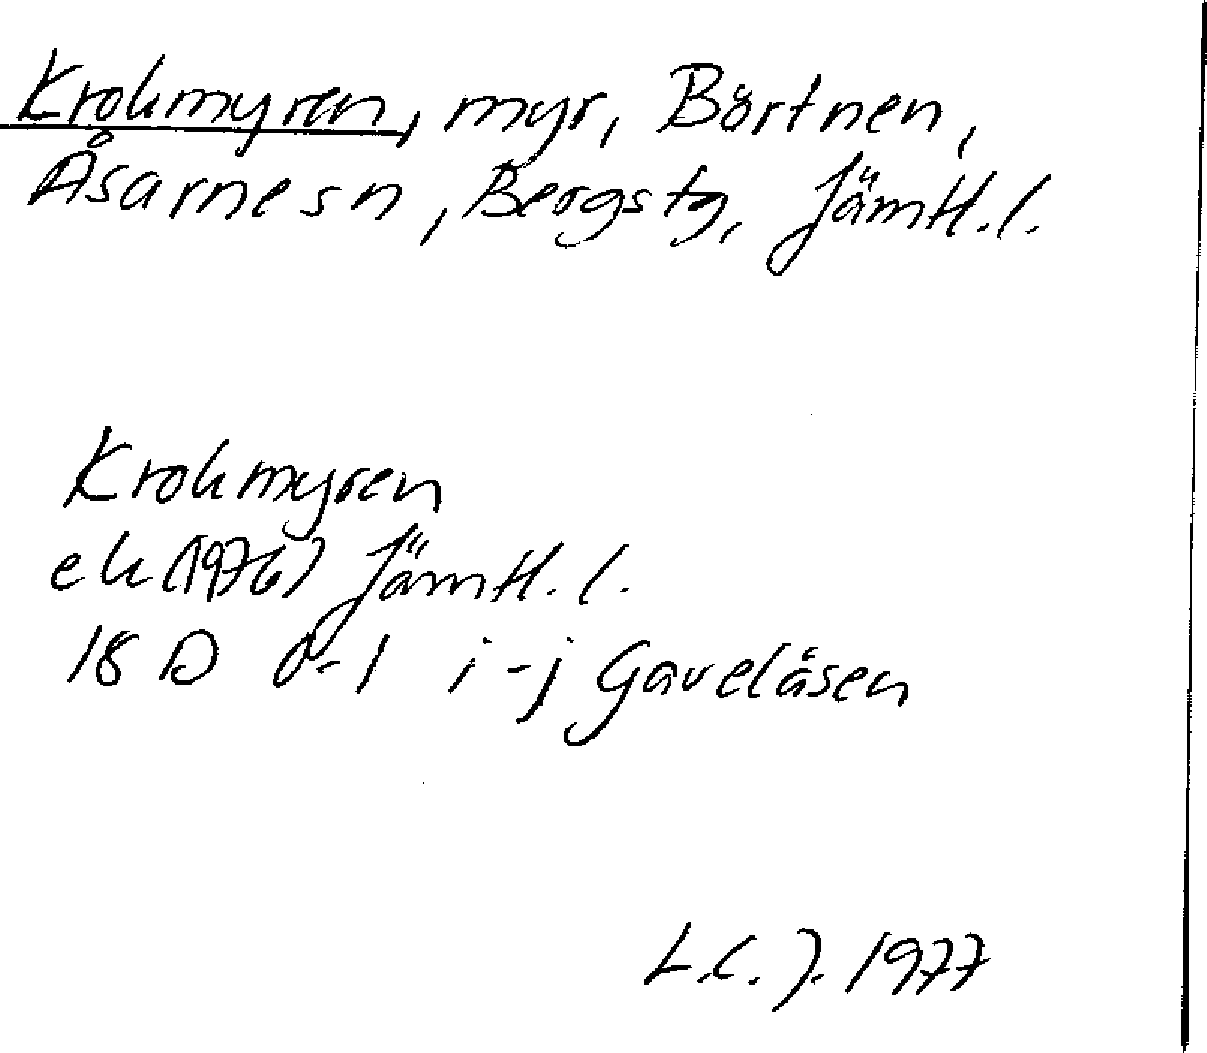 Krokmyren, myr, Börtnen,
Åsarnesn, Bergstg, Jämtl.l.
Krokmyren
ek (1976) Jämtl.l.
18 D 0-1 i-j Gaveläsen
L.C.J. 1977